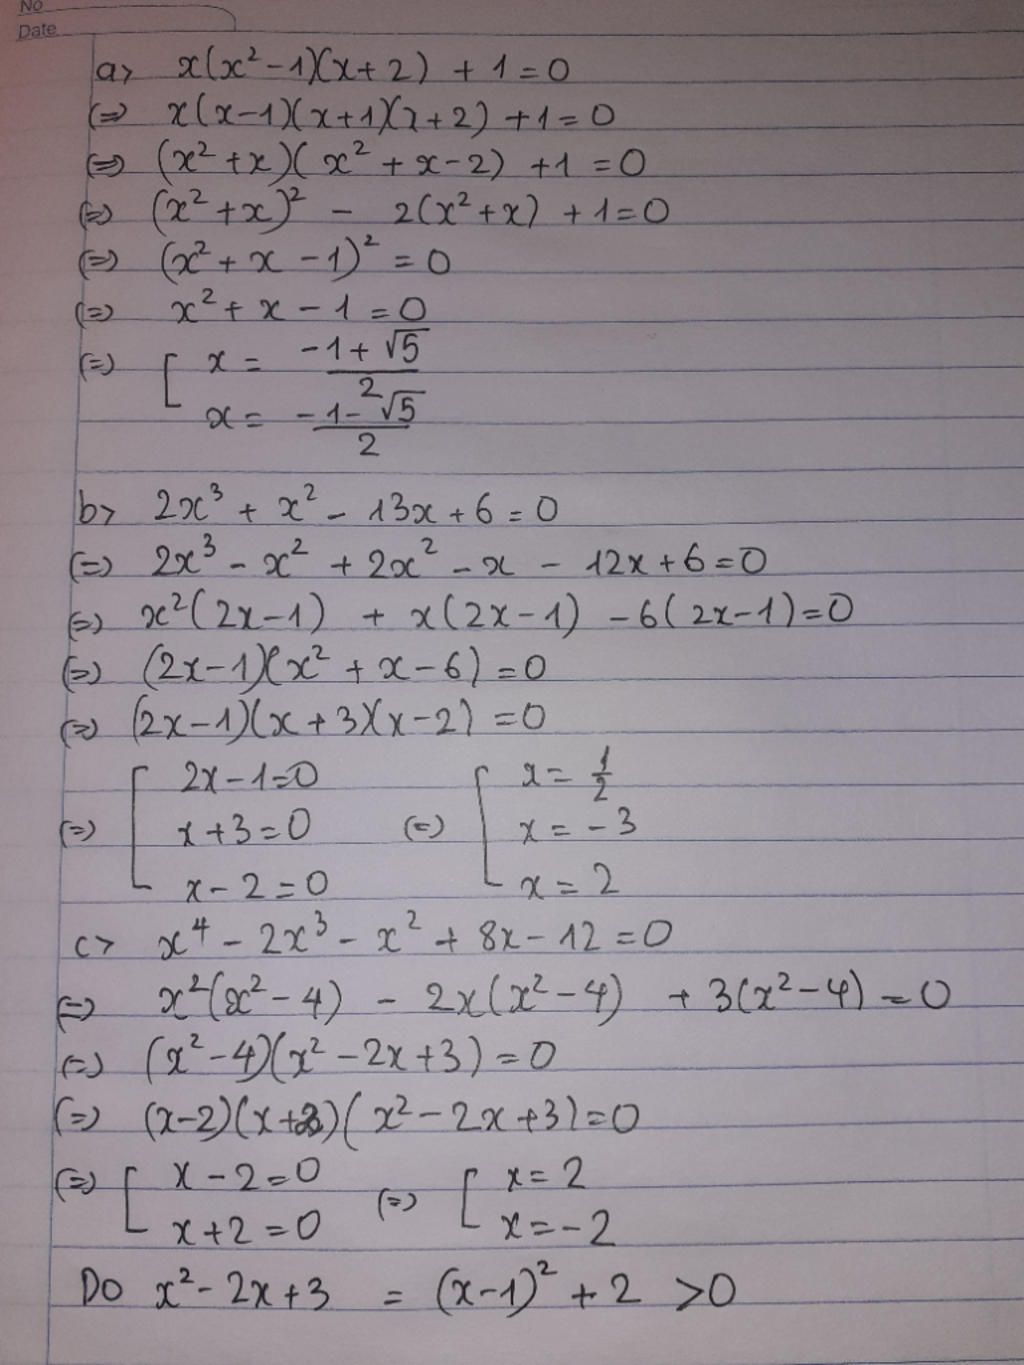 No
Date
a> x(x² - 1)(x + 2) + 1 = 0
(=) x(x-1)(x+1)(x+2) + 1 = 0
(=) (x² + x)(x² + x - 2) + 1 = 0
(=) (x² + x)² - 2(x² + x) + 1 = 0
(=) (x² + x - 1)² = 0
(=) x² + x - 1 = 0
(=) [ x = (-1 + √5)/2
x = (-1 - √5)/2
b> 2x³ + x² - 13x + 6 = 0
(=) 2x³ - x² + 2x² - x - 12x + 6 = 0
(=) x²(2x - 1) + x(2x - 1) - 6(2x - 1) = 0
(=) (2x - 1)(x² + x - 6) = 0
(=) (2x - 1)(x + 3)(x - 2) = 0
2x - 1 = 0 x = 1/2
(=) [ x + 3 = 0 (=) [ x = -3
x - 2 = 0 x = 2
c> x⁴ - 2x³ - x² + 8x - 12 = 0
(=) x²(x² - 4) - 2x(x² - 4) + 3(x² - 4) = 0
(=) (x² - 4)(x² - 2x + 3) = 0
(=) (x - 2)(x + 2)(x² - 2x + 3) = 0
(=) [ x - 2 = 0 (=) [ x = 2
x + 2 = 0 x = -2
Do x² - 2x + 3 = (x - 1)² + 2 > 0